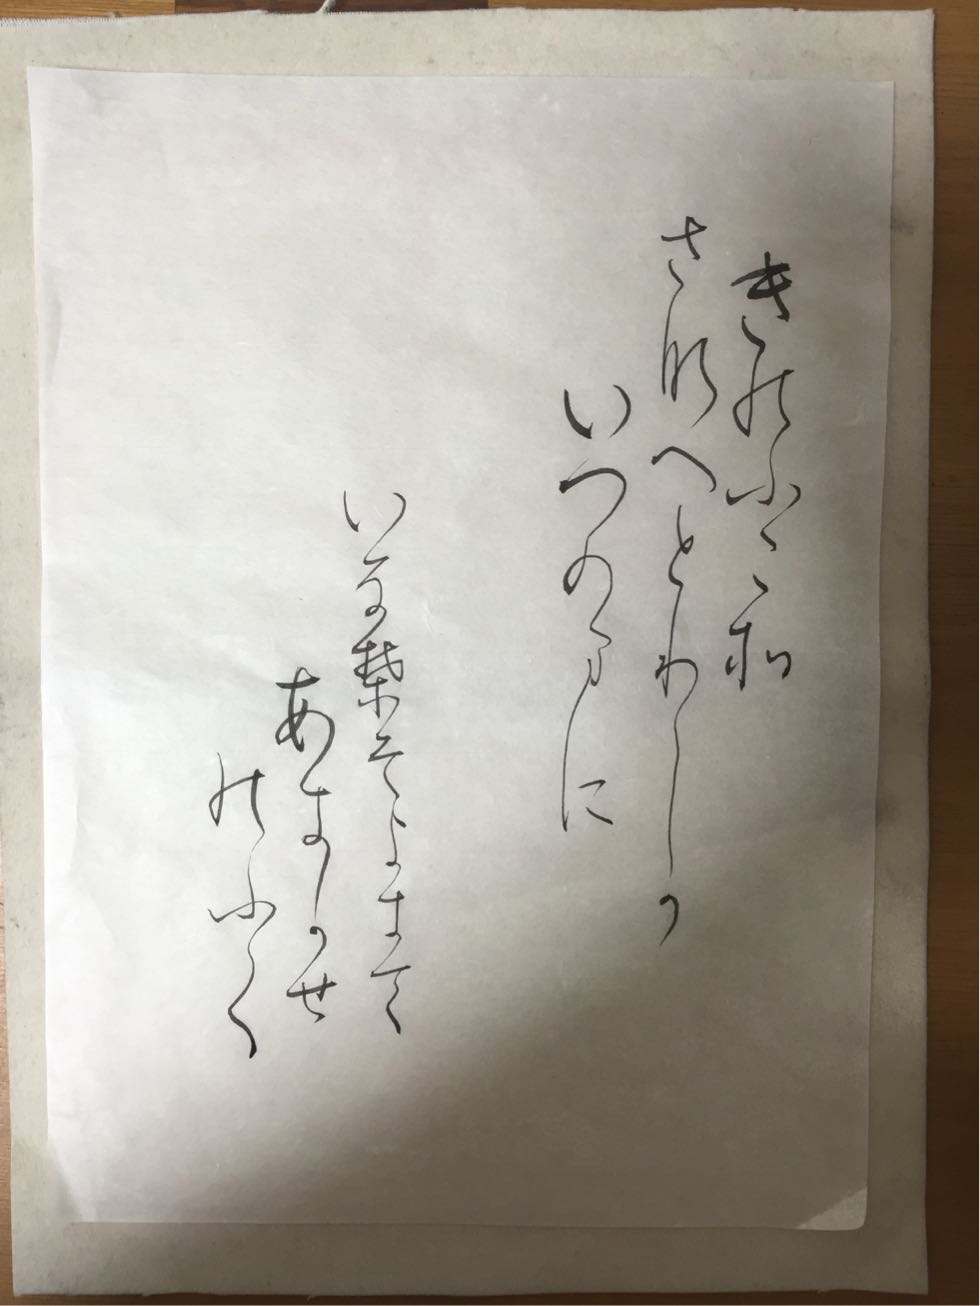 きのふこそ
さなへとりしか
いつのまに
いな葉そよきて
あきかせ
のふく